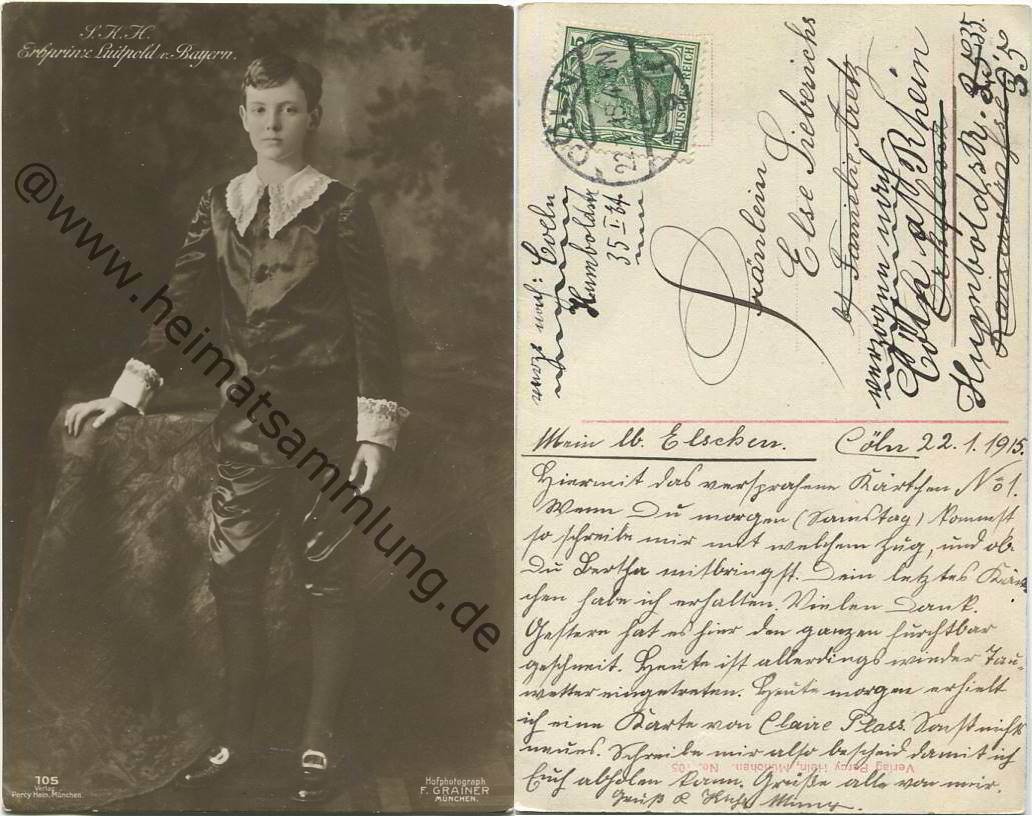 S. K. H.
Erbprinz Luitpold v. Bayern.
@www.heimatsammlung.de
105
Verlag
Percy Hein, München.
Hofphotograph
F. GRAINER
MÜNCHEN.
DEUTSCHES REICH
5
CÖLN
22
Fräulein
Else Sieberichs
b/ Familie
verzogen nach
Cöln a/ Rhein
Humboldstr. 35
verzg. nach: Coeln
Humboldstr
35 I. Et.
Mein lb. Elschen. Cöln 22.1.1915.
Hiermit das versprochene Kärtchen No 1.
Wenn Du morgen (Samstag) kommst
so schreibe mir mit welchem Zug, und ob
Du Bertha mitbringst. Dein letztes Kärt-
chen habe ich erhalten. Vielen Dank.
Gestern hat es hier den ganzen furchtbar
geschneit. Heute ist allerdings wieder Tau-
wetter eingetreten. Heute morgen erhielt
ich eine Karte von Claire Plass. Sonst nichts
neues. Schreibe mir also bescheid damit ich
Euch abholen kann. Grüße alle von mir.
Gruß &
Verlag Percy Hein, München. No. 105